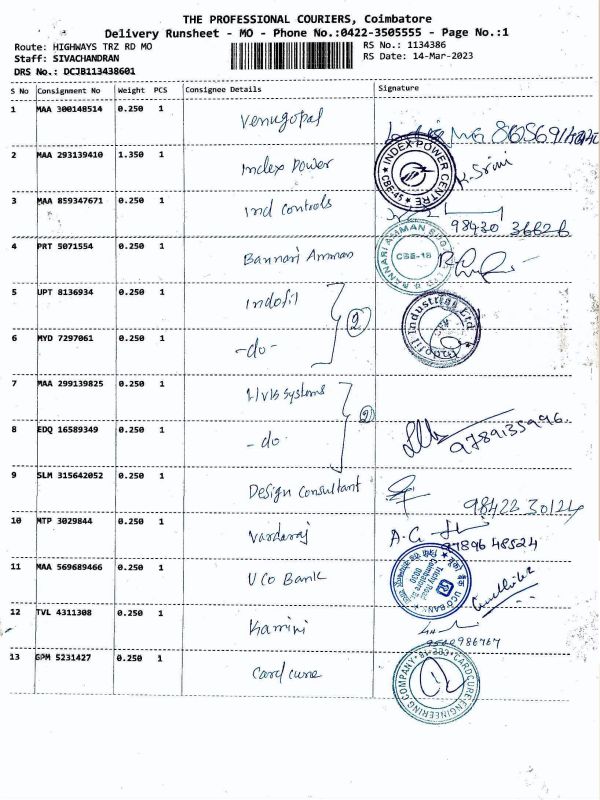 THE PROFESSIONAL COURIERS, Coimbatore
Delivery Runsheet - MO - Phone No.:0422-3505555 - Page No.:1
Route: HIGHWAYS TRZ RD MO RS No.: 1134386
Staff: SIVACHANDRAN RS Date: 14-Mar-2023
DRS No.: DCJB113438601
S No Consignment No Weight PCS Consignee Details Signature
1 MAA 300148514 0.250 1 Venugopal
2 MAA 293139410 1.350 1 Index Power K. Srini
INDEX POWER CENTRE
CBE-45
3 MAA 859347671 0.250 1 Ind Controls
98430 36626
4 PRT 5071554 0.250 1 Bannari Amman
BANNARI AMMAN
CBE-18
5 UPT 8136934 0.250 1 Indofil
2
Indofil Industries Ltd
6 MYD 7297061 0.250 1 -do-
7 MAA 299139825 0.250 1 systems
2
8 EDQ 16589349 0.250 1 -do-
9789135996
9 SLM 315642052 0.250 1 Design Consultant
98422 30124
10 MTP 3029844 0.250 1 Vardaraj A.G.
97896 48524
11 MAA 569689466 0.250 1 UCO Bank
UCO BANK
Trichy Road
Coimbatore
12 TVL 4311308 0.250 1 Kamini
986767
13 GPM 5231427 0.250 1 Cardcure
CARDCURE ENGINEERING COMPANY